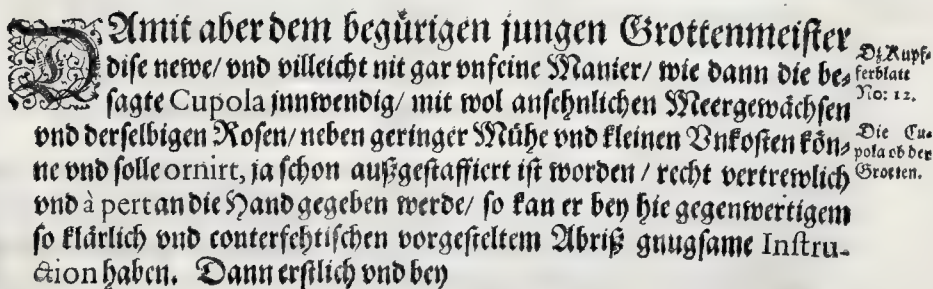 DAmit aber dem begürigen jungen Grottenmeister
dise newe/ vnd villeicht nit gar vnfeine Manier/ wie dann die be⸗
sagte Cupola innwendig/ mit wol ansehnlichen Meergewächsen
vnd derselbigen Rosen/ neben geringer Mühe vnd kleinen Vnkosten kön⸗
ne vnd solle ornirt, ja schon außgestaffiert ist worden / recht vertrewlich
vnd à pert an die Hand gegeben werde/ so kan er bey hie gegenwertigem
so klärlich vnd conterfehtischen vorgesteltem Abriß gnugsame Instru-
ction haben. Dann erstlich vnd bey
Dz Kupf⸗
ferblatt
No: 12.
Die Cu⸗
pola ob der
Grotten.